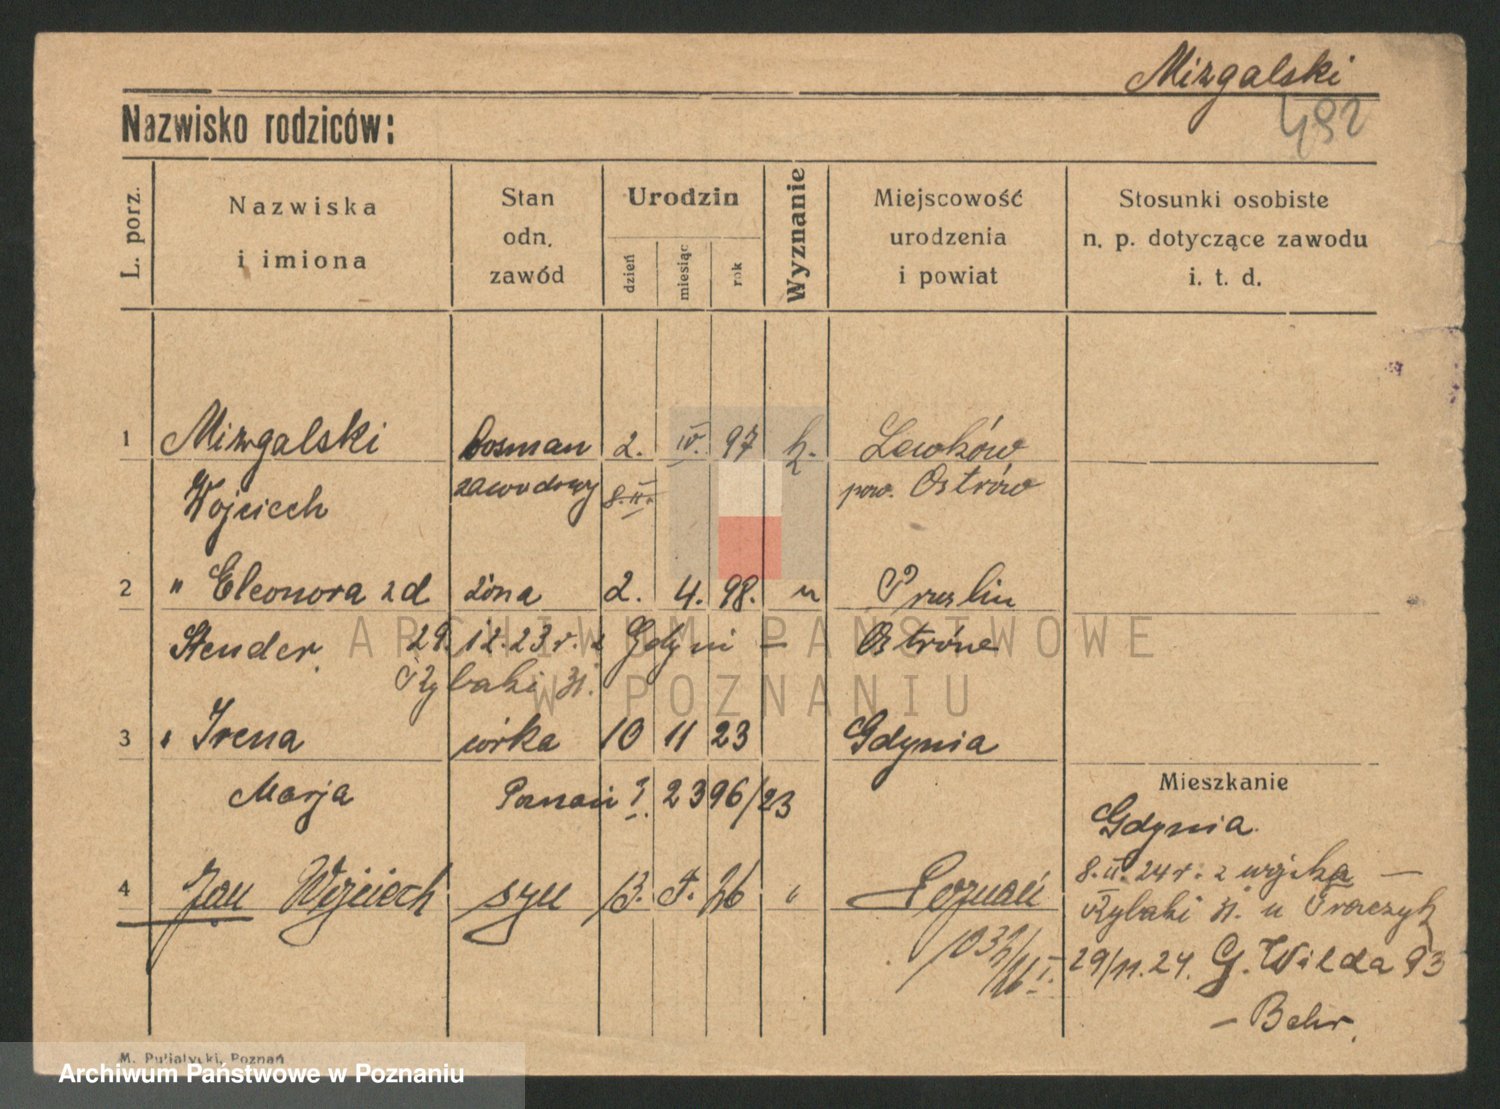 Mizgalski
492
Nazwisko rodziców:
L. porz.
Nazwiska
i imiona
Stan
odn.
zawód
Urodzin
dzień
miesiąc
rok
Wyznanie
Miejscowość
urodzenia
i powiat
Stosunki osobiste
n. p. dotyczące zawodu
i. t. d.
1 Mizgalski bosman 2. IV. 97 k. Lewków
Wojciech zawodowy 8.II. pow. Ostrów
2 " Eleonora zd żona 2. 4. 98. " 
Stender 29.12.23 r. z Gdyni – Ostrów
Rybaki 31.
3 " Irena córka 10 11 23 Gdynia
Marja Poznań 2396/23
Mieszkanie
Gdynia.
4 Jan Wojciech syn 13. 5. 26 " Poznań
8.II.24 r. z wojska –
Rybaki 31. u
29/11.24. G. Wilda 93
– Behr.
M. Putiatycki, Poznań
ARCHIWUM PAŃSTWOWE
W POZNANIU
Archiwum Państwowe w Poznaniu